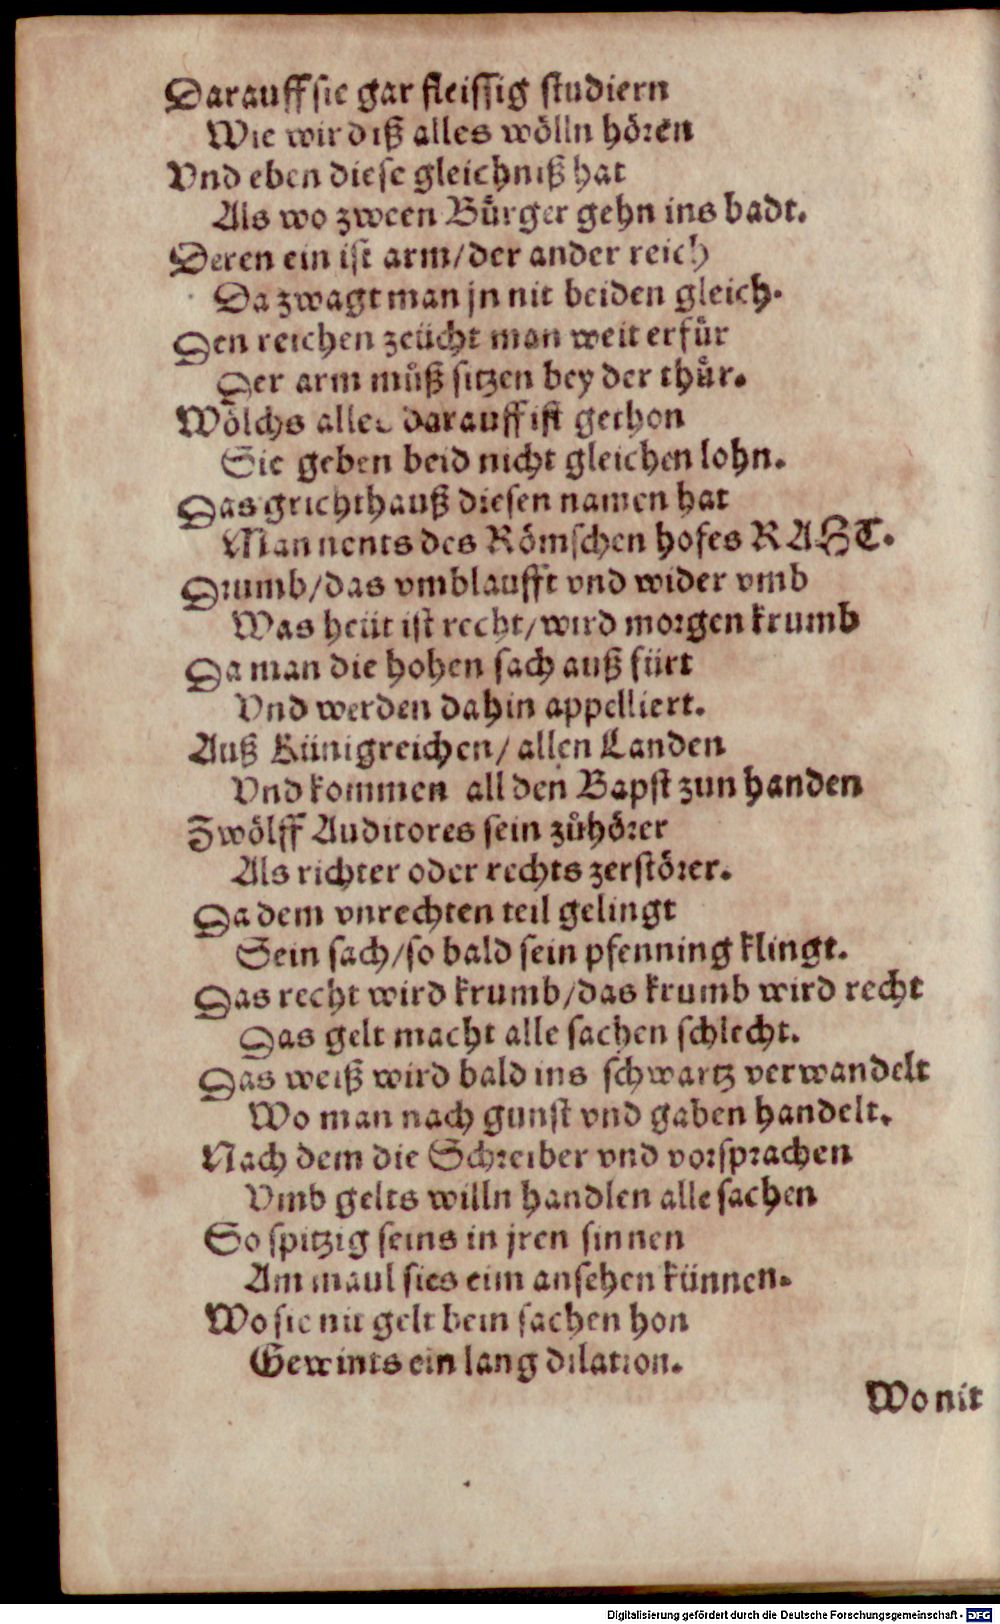 Darauff sie gar fleissig studiern
Wie wir diß alles wölln hören
Vnd eben diese gleichniß hat
Als wo zween Bůrger gehn ins badt.
Deren ein ist arm/der ander reich
Da zwagt man jn nit beiden gleich.
Den reichen zeücht man weit erfür
Der arm můß sitzen bey der thür.
Wölchs alles darauff ist gethon
Sie geben beid nicht gleichen lohn.
Das grichthauß diesen namen hat
Man nents des Römschen hofes RADT.
Drumb/das vmblaufft vnd wider vmb
Was heüt ist recht/wird morgen krumb
Da man die hohen sach auß fürt
Vnd werden dahin appelliert.
Auß Künigreichen/allen Landen
Vnd kommen all den Bapst zun handen
Zwölff Auditores sein zůhörer
Als richter oder rechts zerstörer.
Da dem vnrechten teil gelingt
Sein sach/so bald sein pfenning klingt.
Das recht wird krumb/das krumb wird recht
Das gelt macht alle sachen schlecht.
Das weiß wird bald ins schwartz verwandelt
Wo man nach gunst vnd gaben handelt.
Nach dem die Schreiber vnd vorsprachen
Vmb gelts willn handlen alle sachen
So spitzig seins in jren sinnen
Am maul sies eim ansehen künnen.
Wo sie nit gelt bein sachen hon
Gewints ein lang dilation.
Wo nit
Digitalisierung gefördert durch die Deutsche Forschungsgemeinschaft - DFG